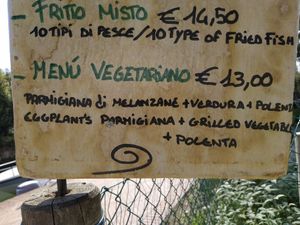 - FRITTO MISTO € 14,50
10 TIPI DI PESCE/10 TYPE OF FRIED FISH
- MENÚ VEGETARIANO € 13,00
PARMIGIANA di MELANZANE + VERDURA + POLENTA
EGGPLANT'S PARMIGIANA + GRILLED VEGETABLE
+ POLENTA